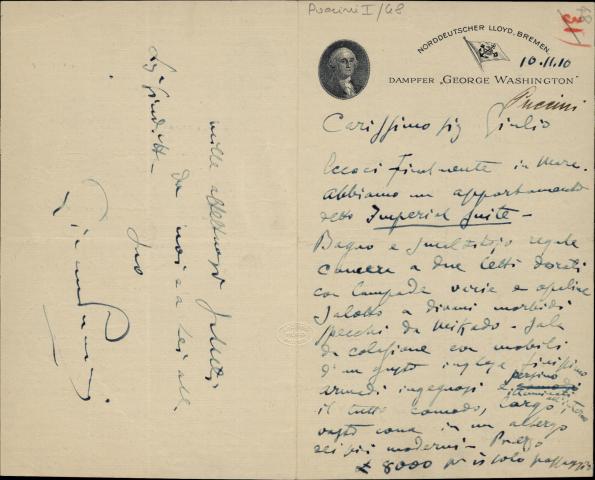 Puccini I/48
48
31
NORDDEUTSCHER LLOYD, BREMEN.
10.11.10
DAMPFER „GEORGE WASHINGTON"
Puccini
Carissimo sig Giulio
Eccoci finalmente in mare.
Abbiamo un appartamento
detto Imperial Suite –
Bagno e regale
camera a due letti dorati
con lampade varie e opaline
Salotto a divani morbidi
specchi da Mikado – Sala
da colazione con mobili
d'un gusto inglese finissimo
armadi ingegnosi e persino
illuminati all'interno
il tutto comodo, largo
vasto come in un albergo
dei più moderni – Prezzo
£ 8000 per il solo passaggio
mille affettuosi saluti
da noi a lei alla
Sigra Giuditta –
suo